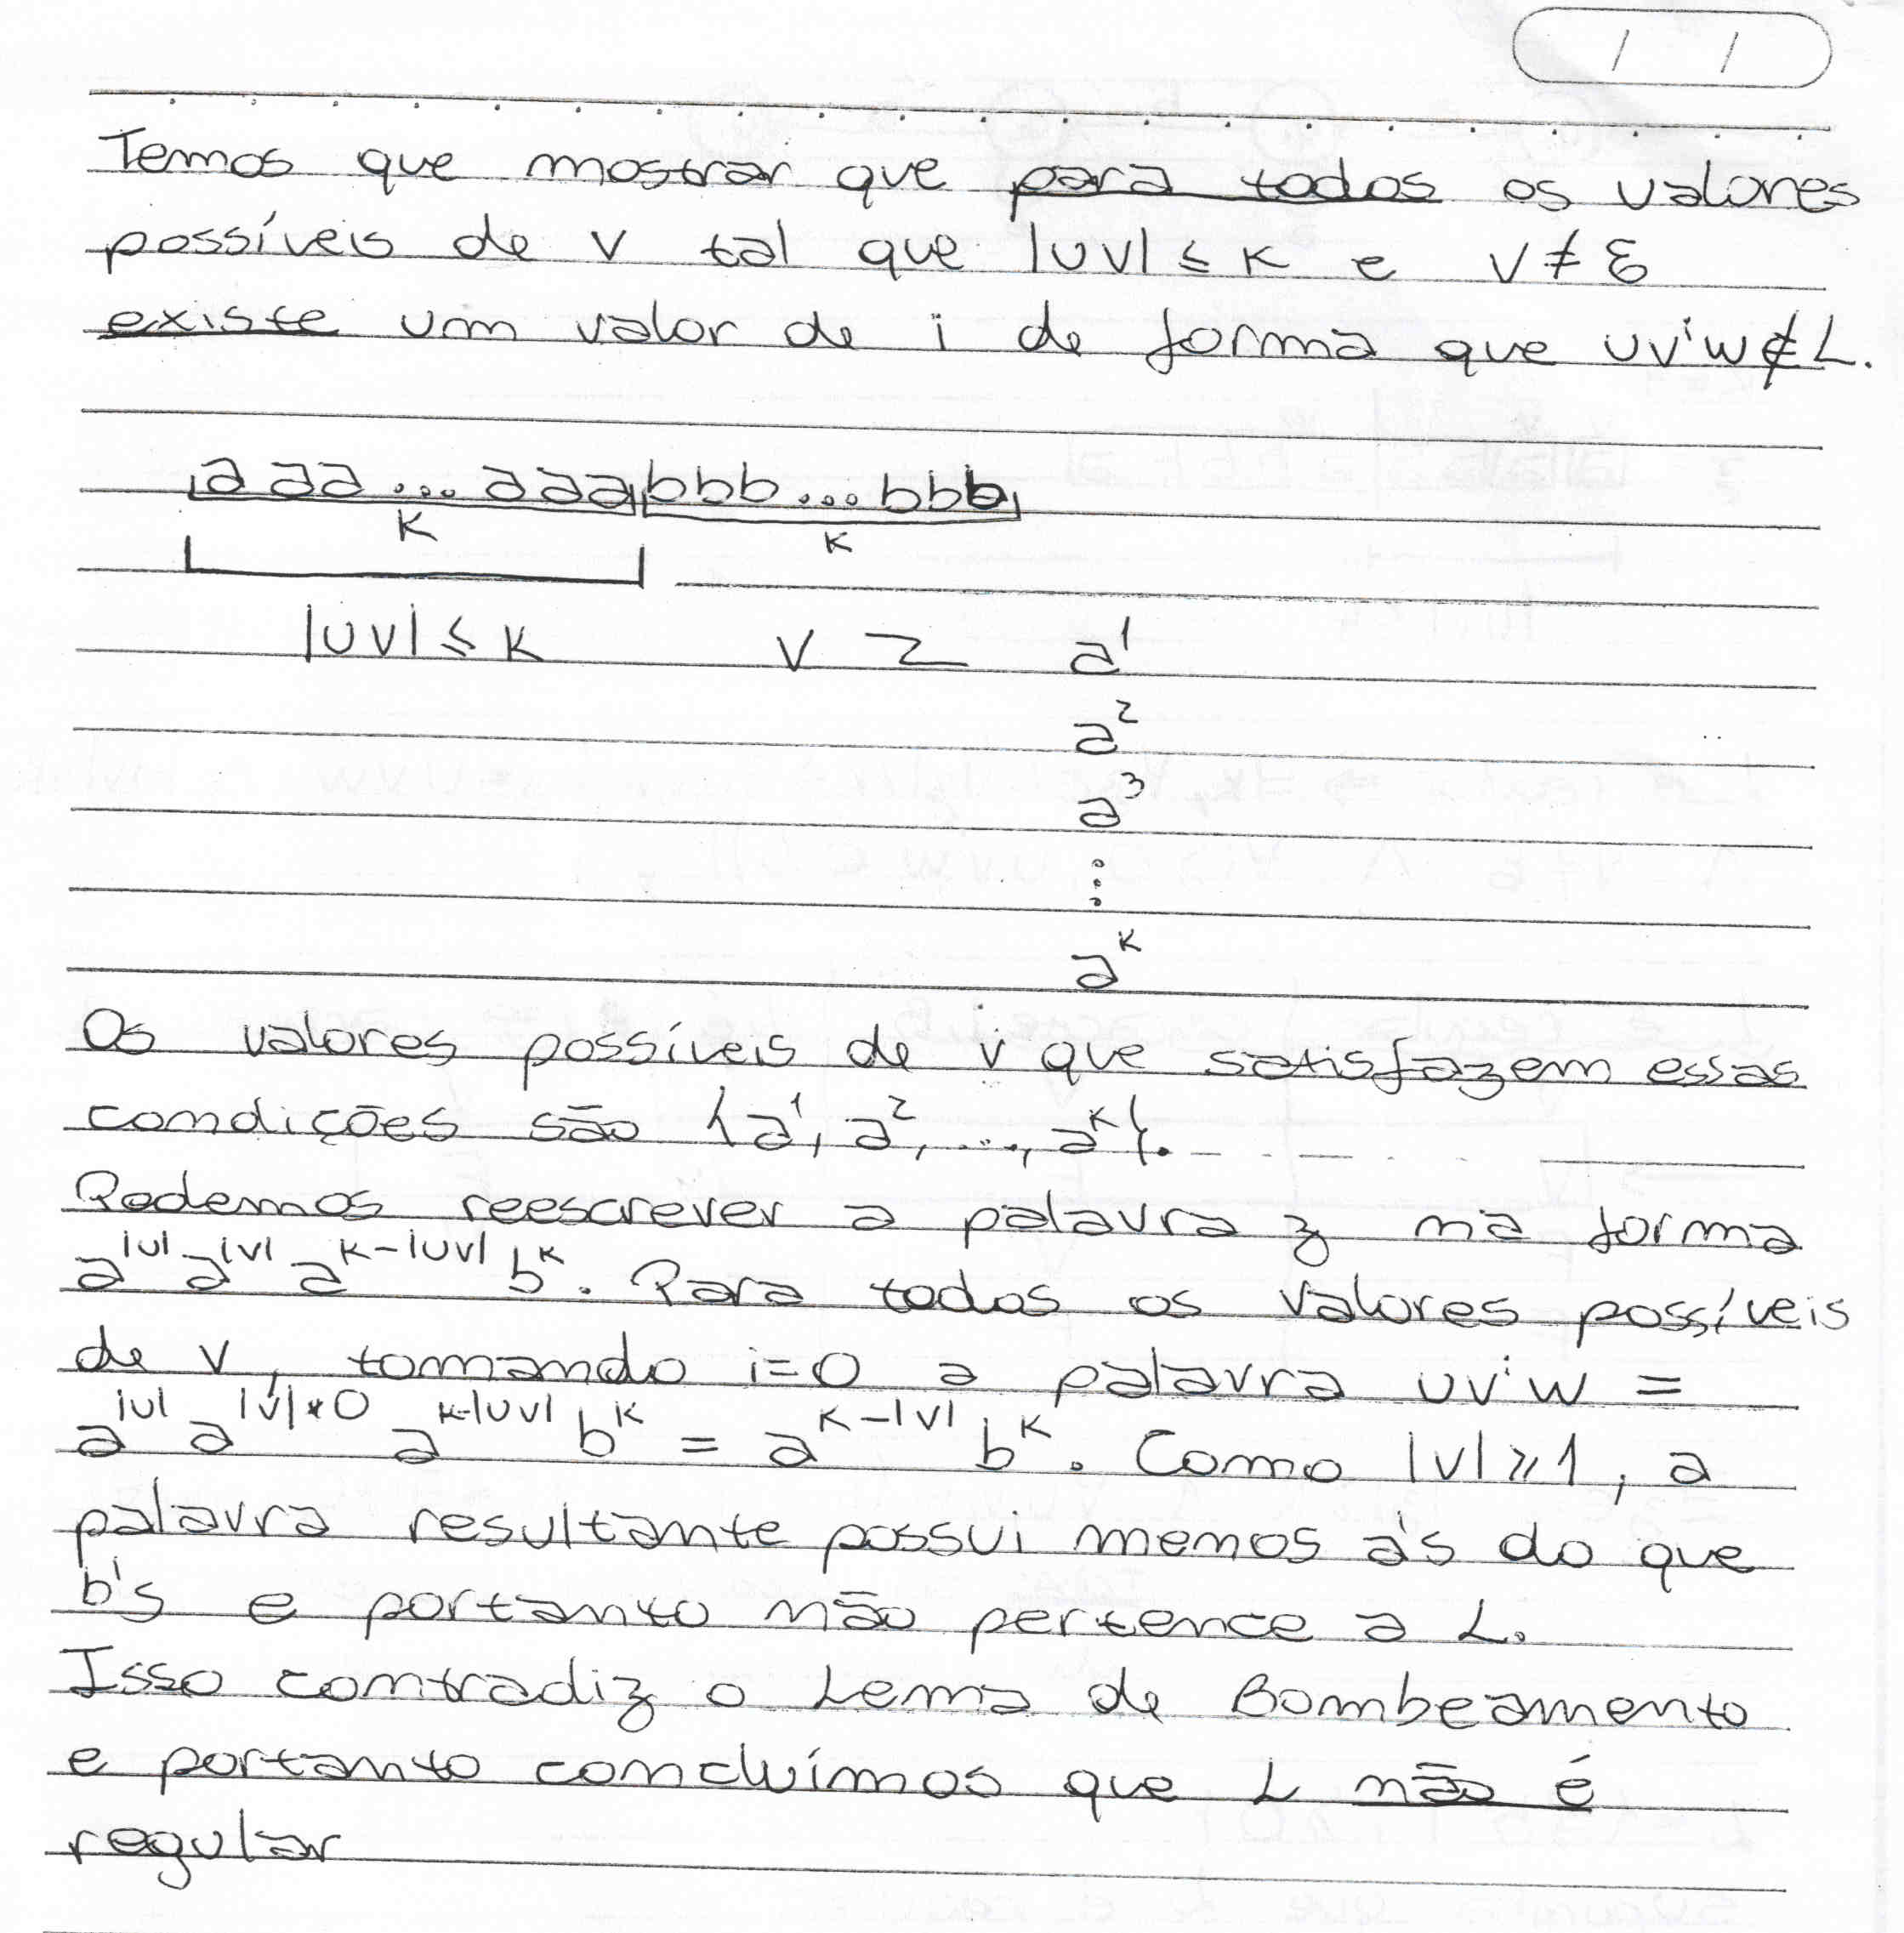 / /
Temos que mostrar que para todos os valores
possíveis de v tal que |uv| ≤ k e v ≠ ε
existe um valor de i de forma que uvⁱw ∉ L.
aaa...aaabbb...bbb
k k
|uv| ≤ k v a¹
a²
a³
⋮
aᵏ
Os valores possíveis de v que satisfazem essas
condições são {a¹, a², ..., aᵏ}.
Podemos reescrever a palavra z na forma
a^|u| a^|v| a^(k-|uv|) b^k. Para todos os valores possíveis
de v, tomando i=0 a palavra uvⁱw =
a^|u| a^(|v|*0) a^(k-|uv|) b^k = a^(k-|v|) b^k. Como |v| ≥ 1, a
palavra resultante possui menos a's do que
b's e portanto não pertence a L.
Isso contradiz o Lema de Bombeamento
e portanto concluímos que L não é
regular